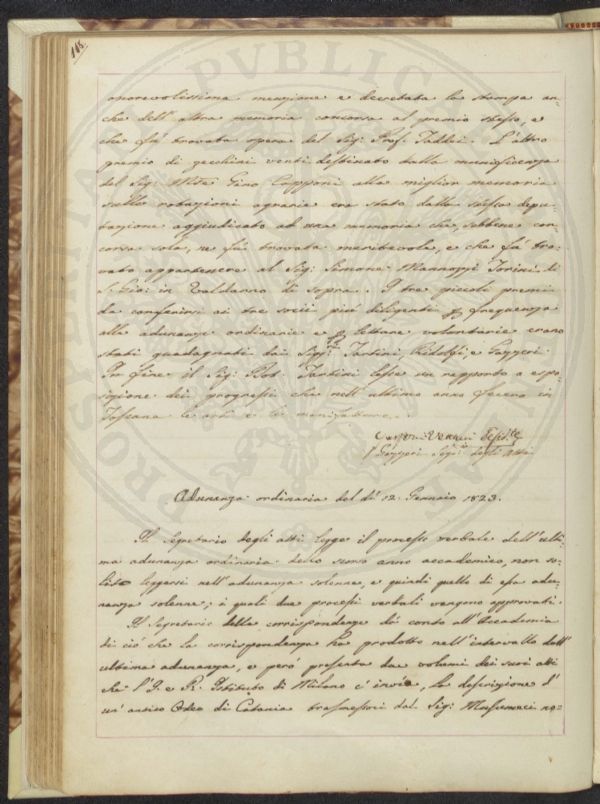 165.
onorevolissima menzione e decretata la stampa an-
che dell'altra memoria concorsa al premio stesso, e
che fu trovata opera del Sig: Prof. Taddei. L'altro
premio di zecchini venti destinato dalla munificenza
del Sig: Mse Gino Capponi alla miglior memoria
sulle rotazioni agrarie era stato dalla stessa depu-
tazione aggiudicato ad una memoria che, sebbene con-
corsa sola, ne fu trovata meritevole, e che fu tro-
vato appartenere al Sig: Simone Mannozzi Torini di
S. Gio: in Valdarno di Sopra. I tre piccoli premi
da conferirsi ai tre socii più diligenti p frequenza
alle adunanze ordinarie e p letture volontarie erano
stati guadagnati dai Sigg: Tartini, Ridolfi, e Gazzeri.
In fine il Sig: Tartini lesse un rapporto a espo-
sizione dei progressi che nell'ultimo anno fecero in
Toscana le arti e le manifatture.
Segr: degli Atti
Adunanza ordinaria del dì 12. Gennaio 1823.
Il Segretario degli atti legge il processo verbale dell'ulti-
ma adunanza ordinaria dello scorso anno accademico, non so-
lito leggersi nell'adunanza solenne, e quindi quello di essa adu-
nanza solenne; i quali due processi verbali vengono approvati.
Il Segretario delle corrispondenze dà conto all'Accademia
di ciò che la corrispondenza ha prodotto nell'intervallo dall'
ultima adunanza, e però presenta due volumi dei suoi atti
che l'I. e R. Istituto di Milano c'invia, la descrizione d'
un antico Odeo di Catania trasmessovi dal Sig: Musumeci no-